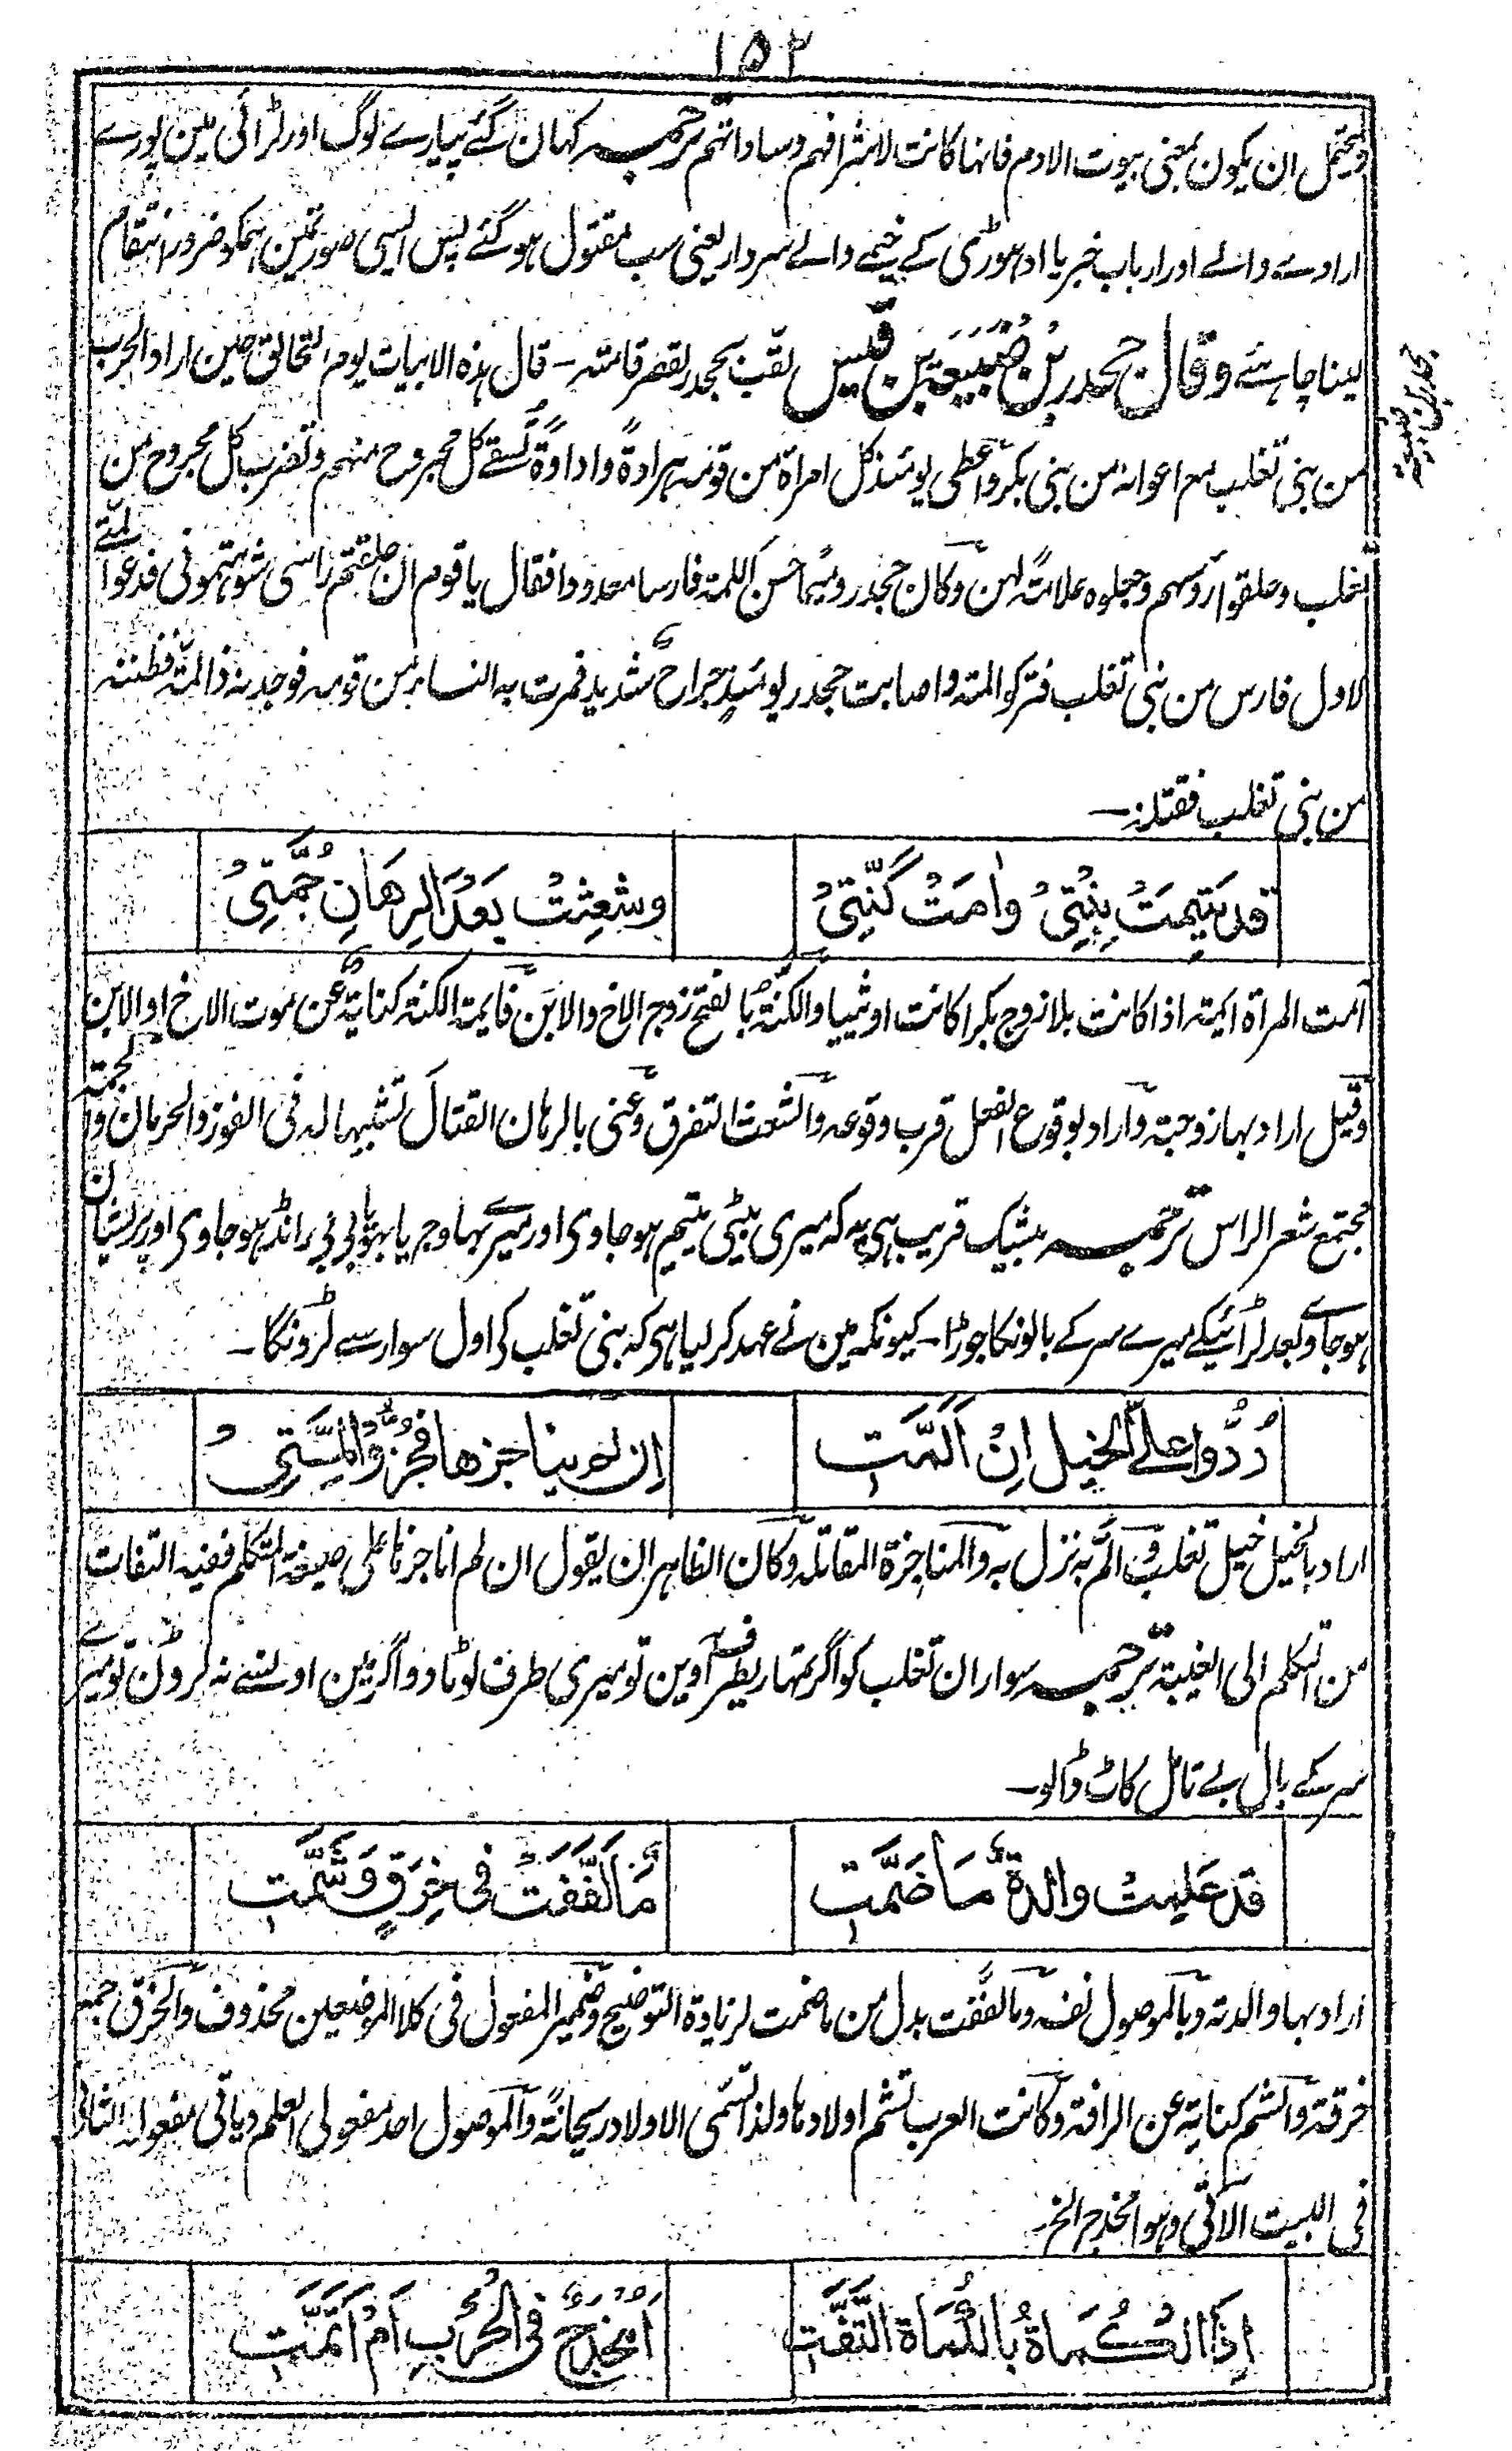 ١٥٢
ويحتمل ان يكون بمعنى بيوت الادم فانها كانت لاشرافهم وساداتهم ترجمہ کہان گئے پیارے لوگ اور لڑائی مین پورے
ارادے والے اور ارباب خبر یا ادہوڑی کے خیمے والے سردار یعنی سب مقتول ہوگئے پس ایسی صورتمین ہمکو ضرور انتقام
لینا چاہئے وقال جحدر بن ضُبَيعَة بن قيس لقّب بجحدر لقصر قامته ـ قال هذه الابيات يوم التحالق حين اراد الحرب
جحدر بن ضبیعۃ
من بنى تغلب مع اعوانه من بنى بكر واعطى يومئذ كل امراة من قومه هراوةً واداوةً لتسقے كل مجروح منهم وتضرب كل مجروح من
تغلب وحلقوا رؤسهم وجعلوه علامةً لهن وكان جحدر دميمًا حسن اللمة فارسا معدودا فقال يا قوم ان حلقتم راسى شوهتمونى فدعوا لمّتے
لاول فارس من بنى تغلب فتركوا لمته واصابت جحدر يومئذٍ جراح شديد فمرت به النساء من قومه فوجدنه ذا لمّة فظننه
من بنى تغلب فقتلنه ـ
قد يَتِمَتْ بِنْتِىْ واٰمَتْ كَنَّتِىْ
وشَعِثَتْ بَعْدَ الرِهَانِ جُمَّتِىْ
آمت المراة ايمة اذا كانت بلا زوج بكرا كانت او ثيبا والكنّة بالفتح زوج الاخ والابن فايمة الكنة كناية عن موت الاخ او الابن
وقيل اراد بها زوجته واراد بوقوع الفعل قرب وقوعه والشعث التفرق وعنى بالرهان القتال تشبيها له فى الفوز والحرمان والجمة
مجتمع شعر الراس ترجمہ بیشک قریب ہی یہ کہ میری بیٹی یتیم ہوجاوی اور میرے بہاوج یا بہو یا بی بی رانڈ ہوجاوی اور پریشان
ہوجاوے بعد لڑائیکے میرے سر کے بالونکا جوڑا ـ کیونکہ مین نے عہد کرلیا ہی کہ بنی تغلب کی اول سوار سے لڑونگا ـ
رُدُّوا علىَّ الخيل اِنْ اَلَمَّتِ
اِن لم يناجزها فجُزُّوا لِمَّتِىْ
اراد بالخيل خيل تغلب والَمَّ به نزل به والمناجزة المقاتلة وكان الظاهر ان يقول ان لم اناجزها على صيغة المتكلم ففيه التفات
من التكلم الى الغيبة ترجمہ سواران تغلب کو اگر تمہاریطرف آوین تو میری طرف لوٹا دو اگر مین اونسے نہ لڑون تو میرے
سر کے بال بے تامل کاٹ ڈالو ـ
قد عَلِمت والدةٌ مَا ضَمَّتِ
مَا لَفَّفَتْ فى خِرَقٍ وَشَمَّتِ
اراد بها والدته وبالموصول نفسه وما لففت بدل من ما ضمت لزيادة التوضيح وضمير المفعول فى كلا الموضعين محذوف والخرق جمع
خرقة والشم كناية عن الرافة وكانت العرب تشم اولادها ولذا تسمى الاولاد ريحانةً والموصول احد مفعولى العلم وياتى مفعوله الثانى
فى البيت الآتى وهو امخدج الخ
اِذَا الكُمَاةُ بالكُمَاة الْتَفَّتِ
اَمُخْدَجٌ فى الحُرْبِ اَمْ اَتَمَّتِ